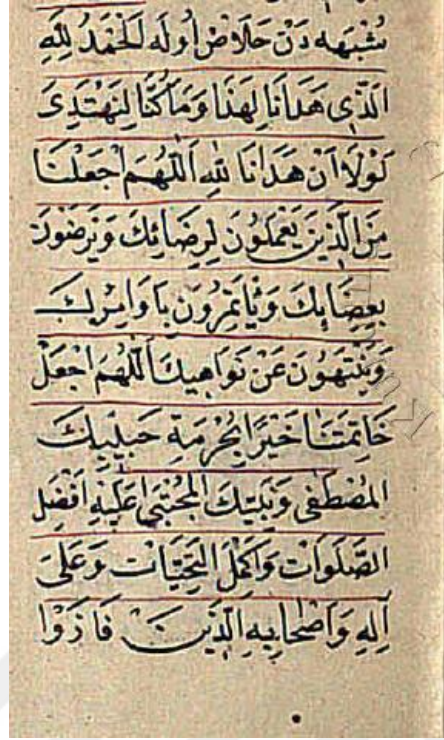 شُبْهَه دَنْ خَلَاصْ اُولَه اَلْحَمْدُ لِلّٰهِ
الَّذِى هَدَانَا لِهَذَا وَمَا كُنَّا لِنَهْتَدِىَ
لَوْلَا اَنْ هَدَانَا للهُ اَللّٰهُمَّ اجْعَلْنَا
مِنَ الَّذِينَ يَعْمَلُونَ لِرِضَائِكَ وَيَرْضَوْنَ
بِقَضَايِكَ وَيَاتَمِرُونَ بِاَوَامِرِكَ
وَيَنْتَهُونَ عَنْ نَوَاهِيكَ اَللّٰهُمَّ اجْعَلْ
خَاتِمَتَنَا خَيْرًا بِحُرْمَةِ حَبِيبِكَ
المُصْطَفٰى وَنَبِيِّكَ المُجْتَبٰى عَلَيْهِ اَفْضَلُ
الصَّلَوَات وَاَكْمَلُ التَّحِيَّات وَعَلَى
اٰلِهِ وَاَصْحَابِهِ الَّذِينَ فَازُوا